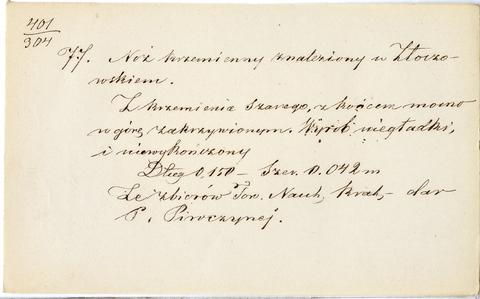 401
304
77. Nóż krzemienny znaleziony w Złoczo-
wskiem.
Z krzemienia szarego, z końcem mocno
w górę zakrzywionym. Wyrób niegładki,
i niewykończony
Dług 0.150 - Szer. 0.042 m
Ze zbiorów Tow. Nauk, krak, - dar
P.